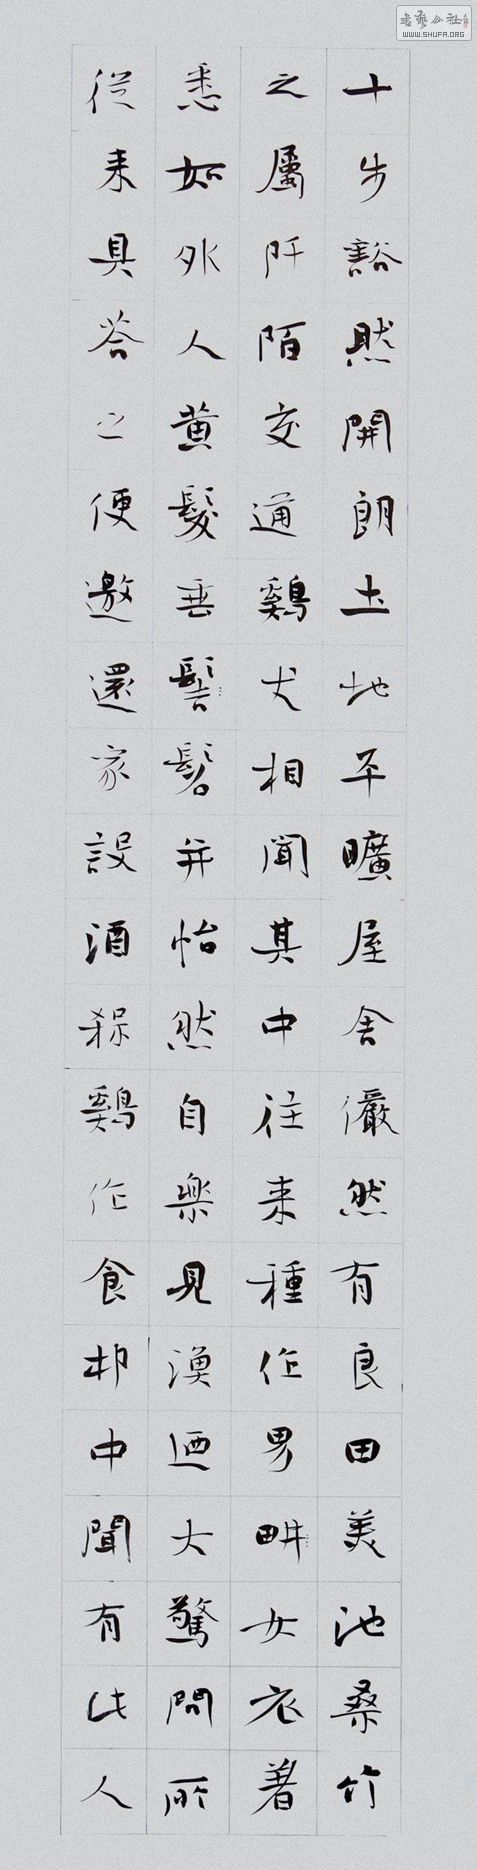 書藝公社
WWW.SHUFA.ORG
十步豁然開朗土地平曠屋舍儼然有良田美池桑竹
之屬阡陌交通鷄犬相聞其中往来種作男畊女衣着
悉如外人黄髮垂髻髫并怡然自樂見漁迺大驚問所
從来具荅之便邀還家設酒殺鷄作食邨中聞有此人